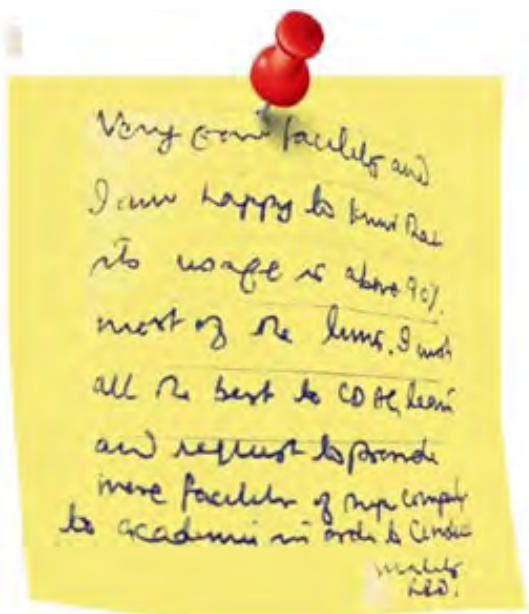 Very good facility and
I am happy to know that
its usage is above 90%.
most of the time. I wish
all the best to CDAC, team
and request to provide
more facilities of super computer
to academia in order to conduct
R&D.